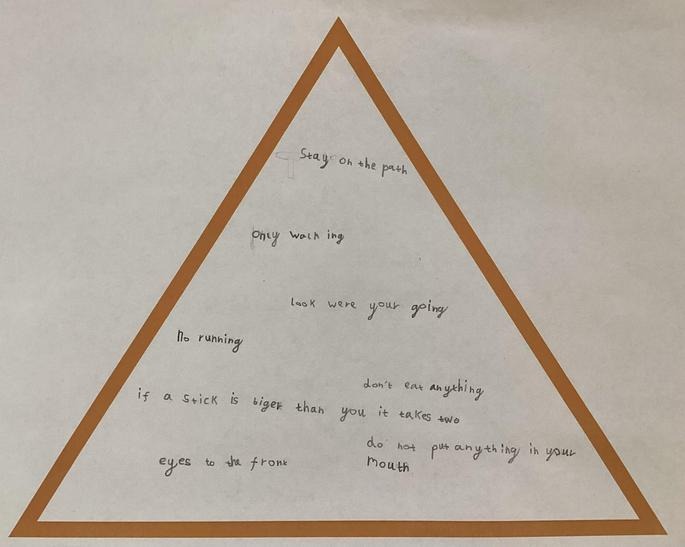 Stay on the path
only walking
look were your going
No running
don't eat anything
if a stick is biger than you it takes two
do not put anything in your
mouth
eyes to the front